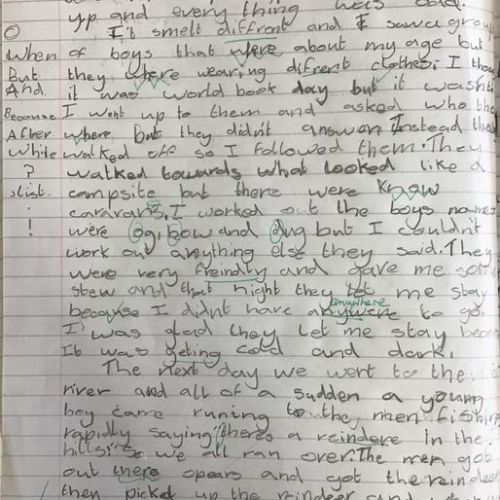 up and every thing was odd.
I's smelt diffrent and I saw a group
When of boys that where about my age but
But they where wearing difrent clothes. I thou
And it was world book day but it wasnt
Because I went up to them and asked who the
After where. But they didn't answer. Instead the
While walked off so I followed them. They
? walked towards what looked like a
list. campsite but there were know
. caravans, I worked out the boys names
! were Og, bow and dug but I couldn't
work out anything else they said. They
were very freindly and gave me some
stew and that night they let me stay
anywhere
because I didnt have anywere to go.
I was glad they let me stay beca
It was geting cold and dark.
The next day we went to the
river and all of a sudden a young
boy came runing to the men fishing
rapidly saying "theres a reindere in the
hills" so we all ran over. The men got
out there spears and got the reindee
then picked up the reindeer and